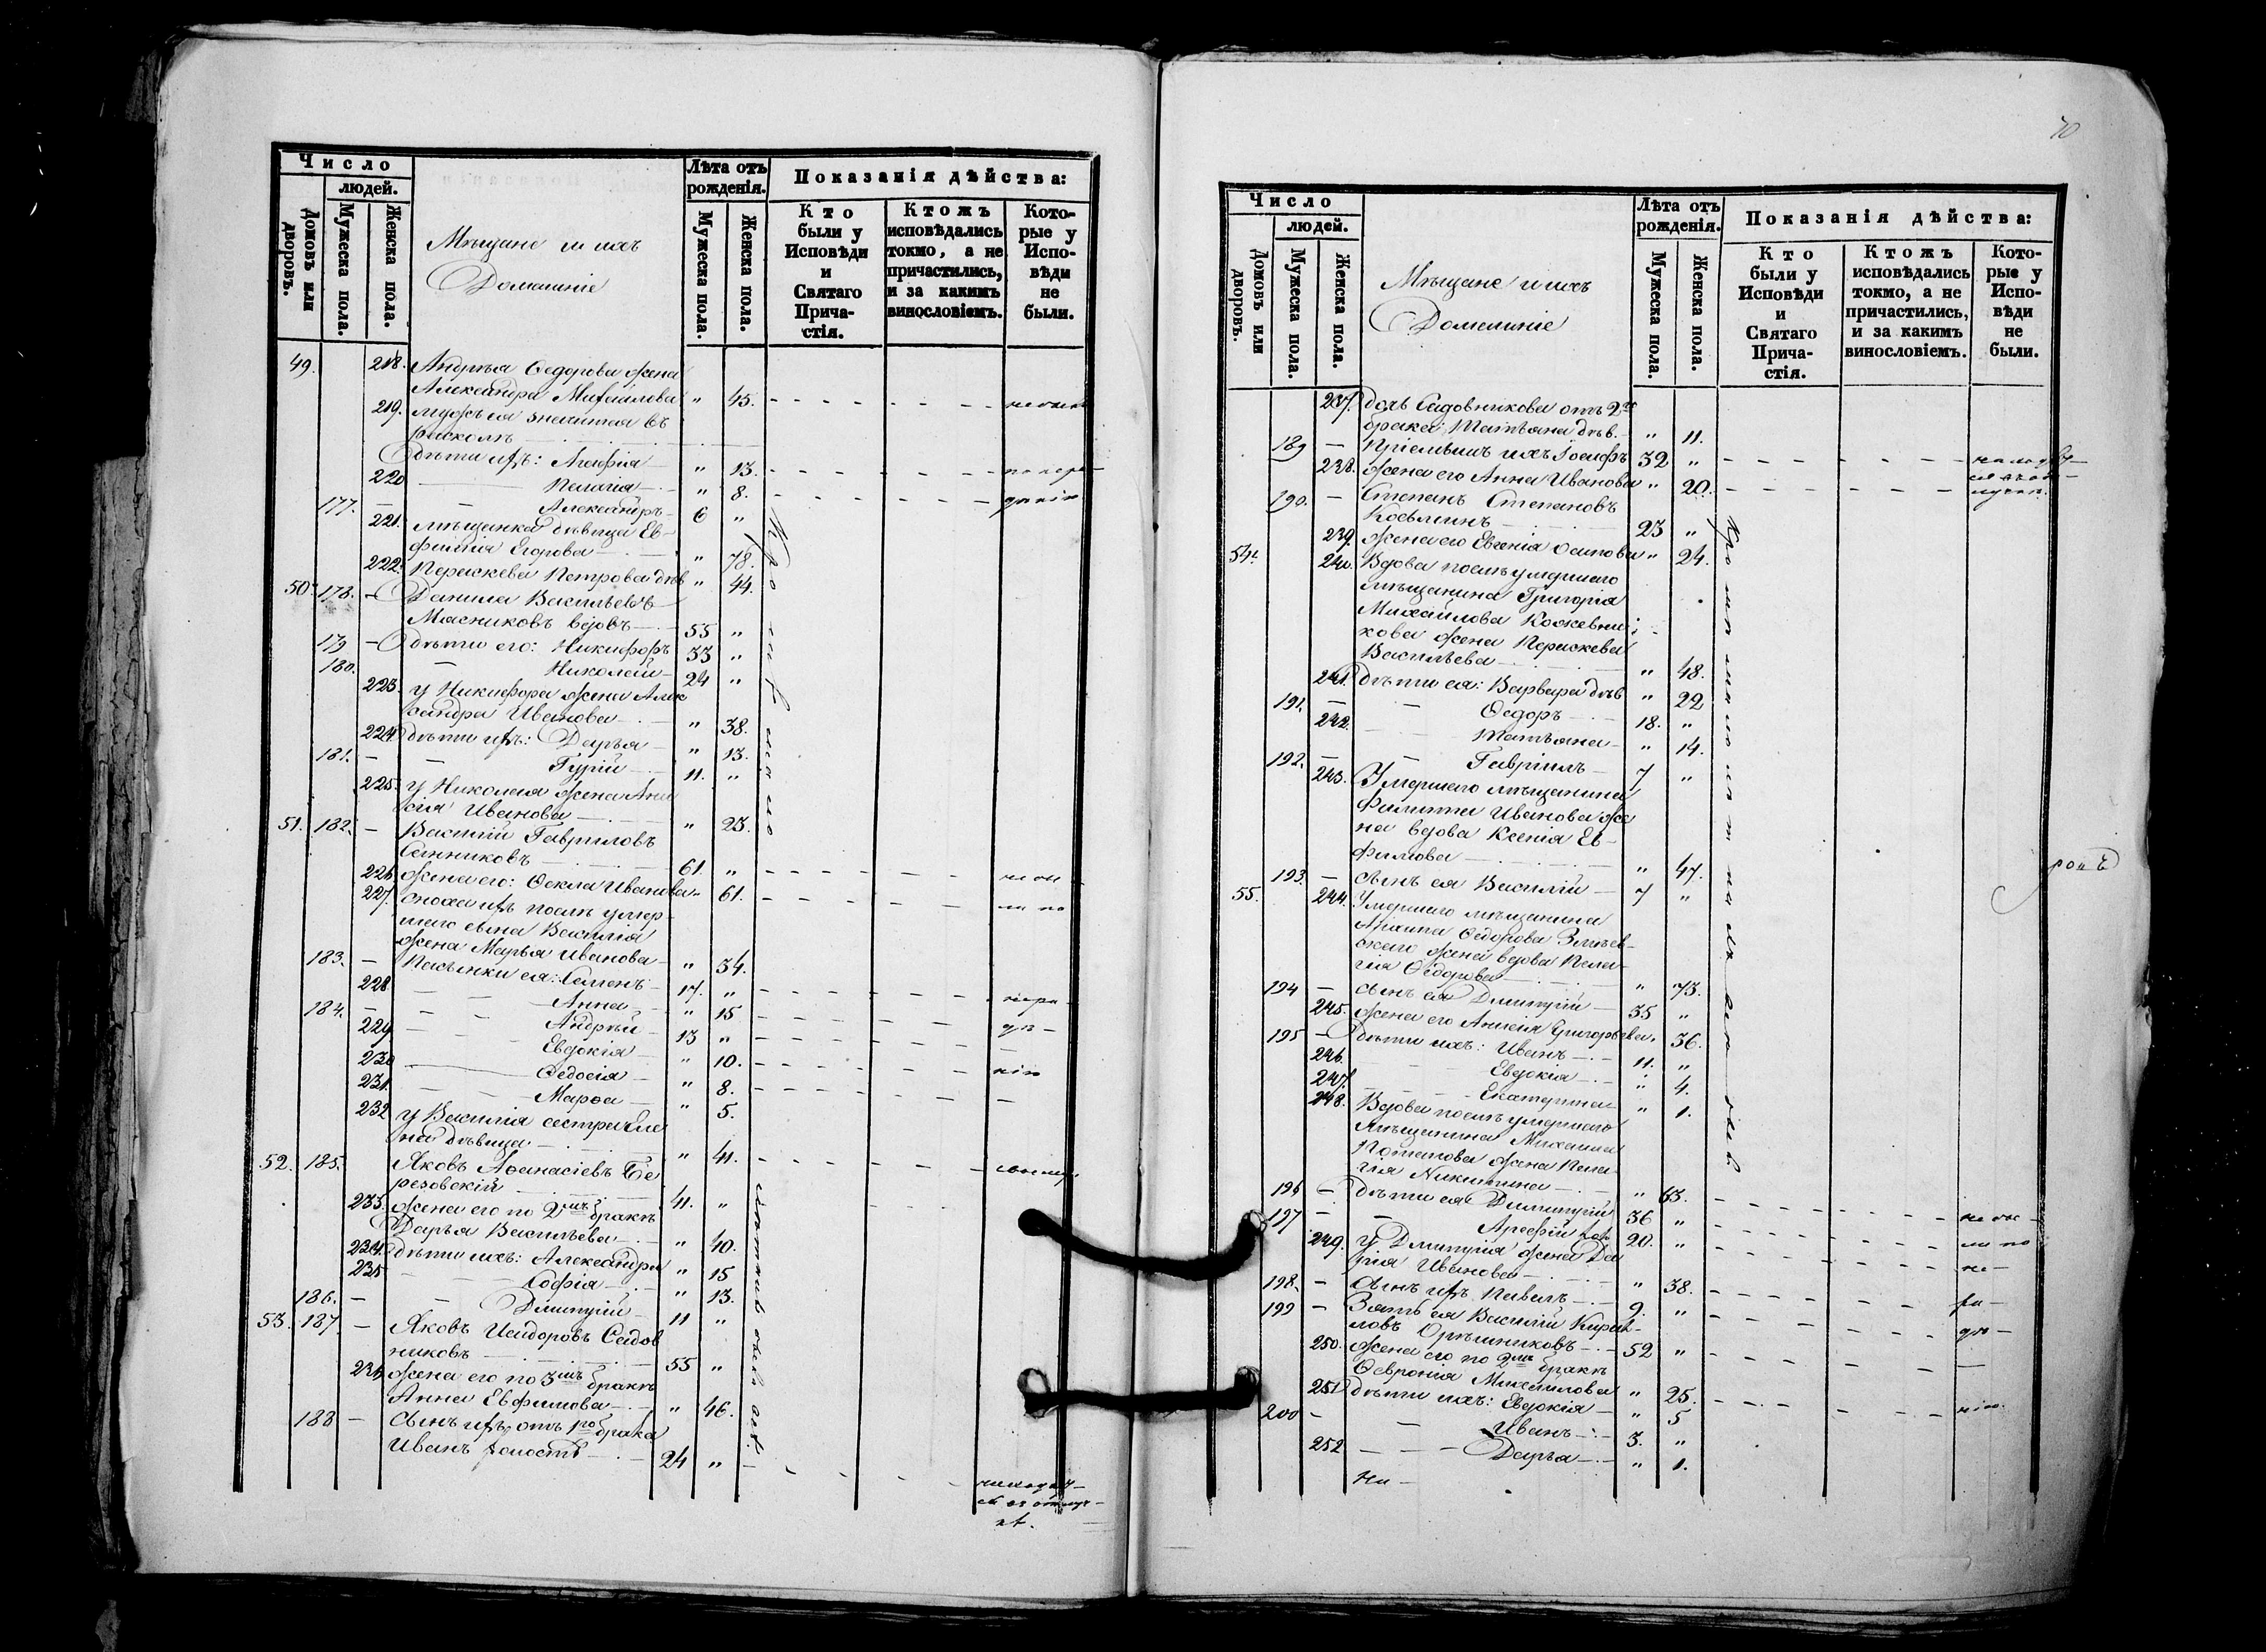 Число
людей.
Домовъ или дворовъ.
Мужеска пола.
Женска пола.
Мѣщане и ихъ
Домашніе
Лѣта отъ рожденія.
Мужеска пола.
Женска пола.
Показанія дѣйства:
Кто были у Исповѣди и Святаго Прича-стія.
Ктожъ исповѣдались токмо, а не причастились, и за какимъ винословіемъ.
Кото-рые у Испо-вѣди не были.
49. 218. Андрея Ѳедорова жена
Александра Михайлова " 45.
219. мужъ ея значится въ
расколѣ
Дѣти ихъ: Агафія " 13.
220 Пелагія " 8.
177. — Александръ 6 "
221. мѣщанка дѣвица Ев-
фимія Егорова " 78.
222. Параскева Петрова дѣв " 44.
50. 178. — Данила Васильевъ
Мясниковъ вдовъ 55 "
179 — Дѣти его: Никифоръ 33 "
180. Николай 24 "
223. у Никифора жена Алек
сандра Иванова " 38.
224. дѣти ихъ: Дарья " 13.
181. — Гурій 11. "
225. у Николая жена
Иванова " 23.
51. 182. — Василій Гавриловъ
Санниковъ 61. "
226. жена его: Ѳекла Иванова " 61.
227. сноха ихъ послѣ умер-
шаго сына Василія
жена Марья Иванова " 34.
183. — Пасынки ея: Семенъ 17. "
228. Анна " 15
184. — Андрей 13 "
229 Евдокія " 10.
230 Ѳедосія " 8.
231. Марѳа " 5.
232 у Василія сестра Еле
на дѣвица " 41.
52. 185. Яковъ Аѳанасіевъ Бе
резовскій 41. "
233. жена его по 2мъ бракѣ
Дарья Васильева " 40.
234. дѣти ихъ: Александра " 15
235 Софія " 13.
186. — Димитрій 11 "
53. 187. — Яковъ Исидоровъ Садов
никовъ 55 "
236 жена его по 3мъ бракѣ
Анна Евфимова " 46.
188 — Сынъ ихъ отъ 1го брака
Иванъ холостъ 24 "
70
Число
людей.
Домовъ или дворовъ.
Мужеска пола.
Женска пола.
Мѣщане и ихъ
Домашніе
Лѣта отъ рожденія.
Мужеска пола.
Женска пола.
Показанія дѣйства:
Кто были у Исповѣди и Святаго Прича-стія.
Ктожъ исповѣдались токмо, а не причастились, и за какимъ винословіемъ.
Кото-рые у Испо-вѣди не были.
237. дочь Садовникова отъ 2го
брака: Татьяна дѣв. " 11.
189 — Пріемышъ ихъ Іосифъ 32 "
238. жена его Анна Иванова " 20.
190. — Степанъ Степановъ
Косьминъ 23 "
239. жена его Евгенія Осипова " 24.
54. 240. Вдова послѣ умершаго
мѣщанина Григорія
Михайлова Кожевни-
кова жена Параскева
Васильева " 48.
241. дѣти ея: Варвара дѣв " 22
191. — Ѳедоръ 18. "
242. Татьяна " 14.
192. — Гавріилъ 7 "
243. Умершаго мѣщанина
Филиппа Иванова же
на вдова Ксенія Ев-
фимова " 47.
193. — сынъ ея Василій 7 "
55. 244. Умершаго мѣщанина
Архипа Ѳедорова Змѣев-
скаго жена вдова Пела-
гія Ѳедорова " 73.
194 — сынъ ея Димитрій 35 "
245. жена его Анисія Григорьева " 36.
195 — Дѣти ихъ: Иванъ 11. "
246. Евдокія " 4.
247. Екатерина " 1.
248. Вдова послѣ умершаго
мѣщанина Михаила
Потапова жена Пела-
гія Никитина " 63.
196 — Дѣти ея Димитрій 36 "
197 — Арефій хол 20. "
249. У Димитрія жена Да
рія Иванова " 38.
198. — сынъ ихъ Павелъ 9. "
199 — Зять ея Василій Кирил-
ловъ Орѣшниковъ 52 "
250. жена его по 2мъ бракѣ
Ѳевронія Михайлова " 25.
251 дѣти ихъ: Евдокія " 5
200 — Иванъ 3. "
252. Дарья " 1.